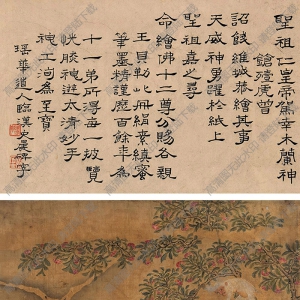 聖祖仁皇帝駕幸木蘭神
鎗殪虎曾
詔飭維城恭繪其事
天威神勇躍於紙上
聖祖嘉之尋
命繪佛十二尊分賜各親
王貝勒此冊絹素縝密
筆墨精謹歷百餘年為
十一弟所得每一披覽
恍陟神遊太清妙手
神工洵為至寶
瑤華道人臨漢史晨碑字